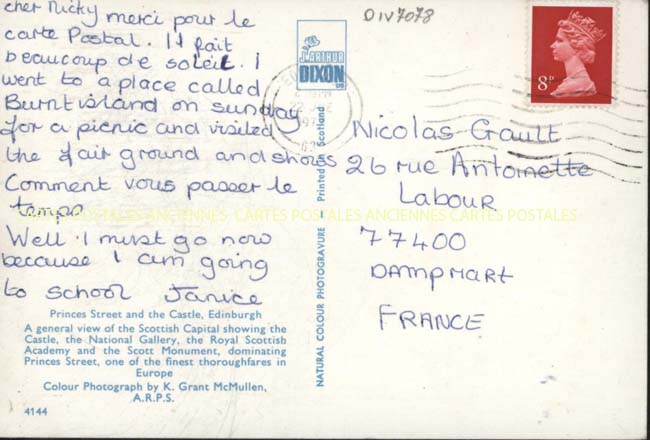 cher Nicky merci pour le
carte Postal. Il fait
beaucoup de soleil. I
went to a place called
Burntisland on sunday
for a picnic and visited
the fair ground and shows
Comment vous passer le
temps
Well I must go now
because I am going
to school Janice
Princes Street and the Castle, Edinburgh
A general view of the Scottish Capital showing the
Castle, the National Gallery, the Royal Scottish
Academy and the Scott Monument, dominating
Princes Street, one of the finest thoroughfares in
Europe
Colour Photograph by K. Grant McMullen,
A.R.P.S.
4144
J. ARTHUR
DIXON
NATURAL COLOUR PHOTOGRAVURE · Printed in Scotland
DIV7078
8P
Nicolas Gault
26 rue Antoinette
Labour
77400
Dampmart
FRANCE
CARTES POSTALES ANCIENNES CARTES POSTALES ANCIENNES CARTES POSTALES